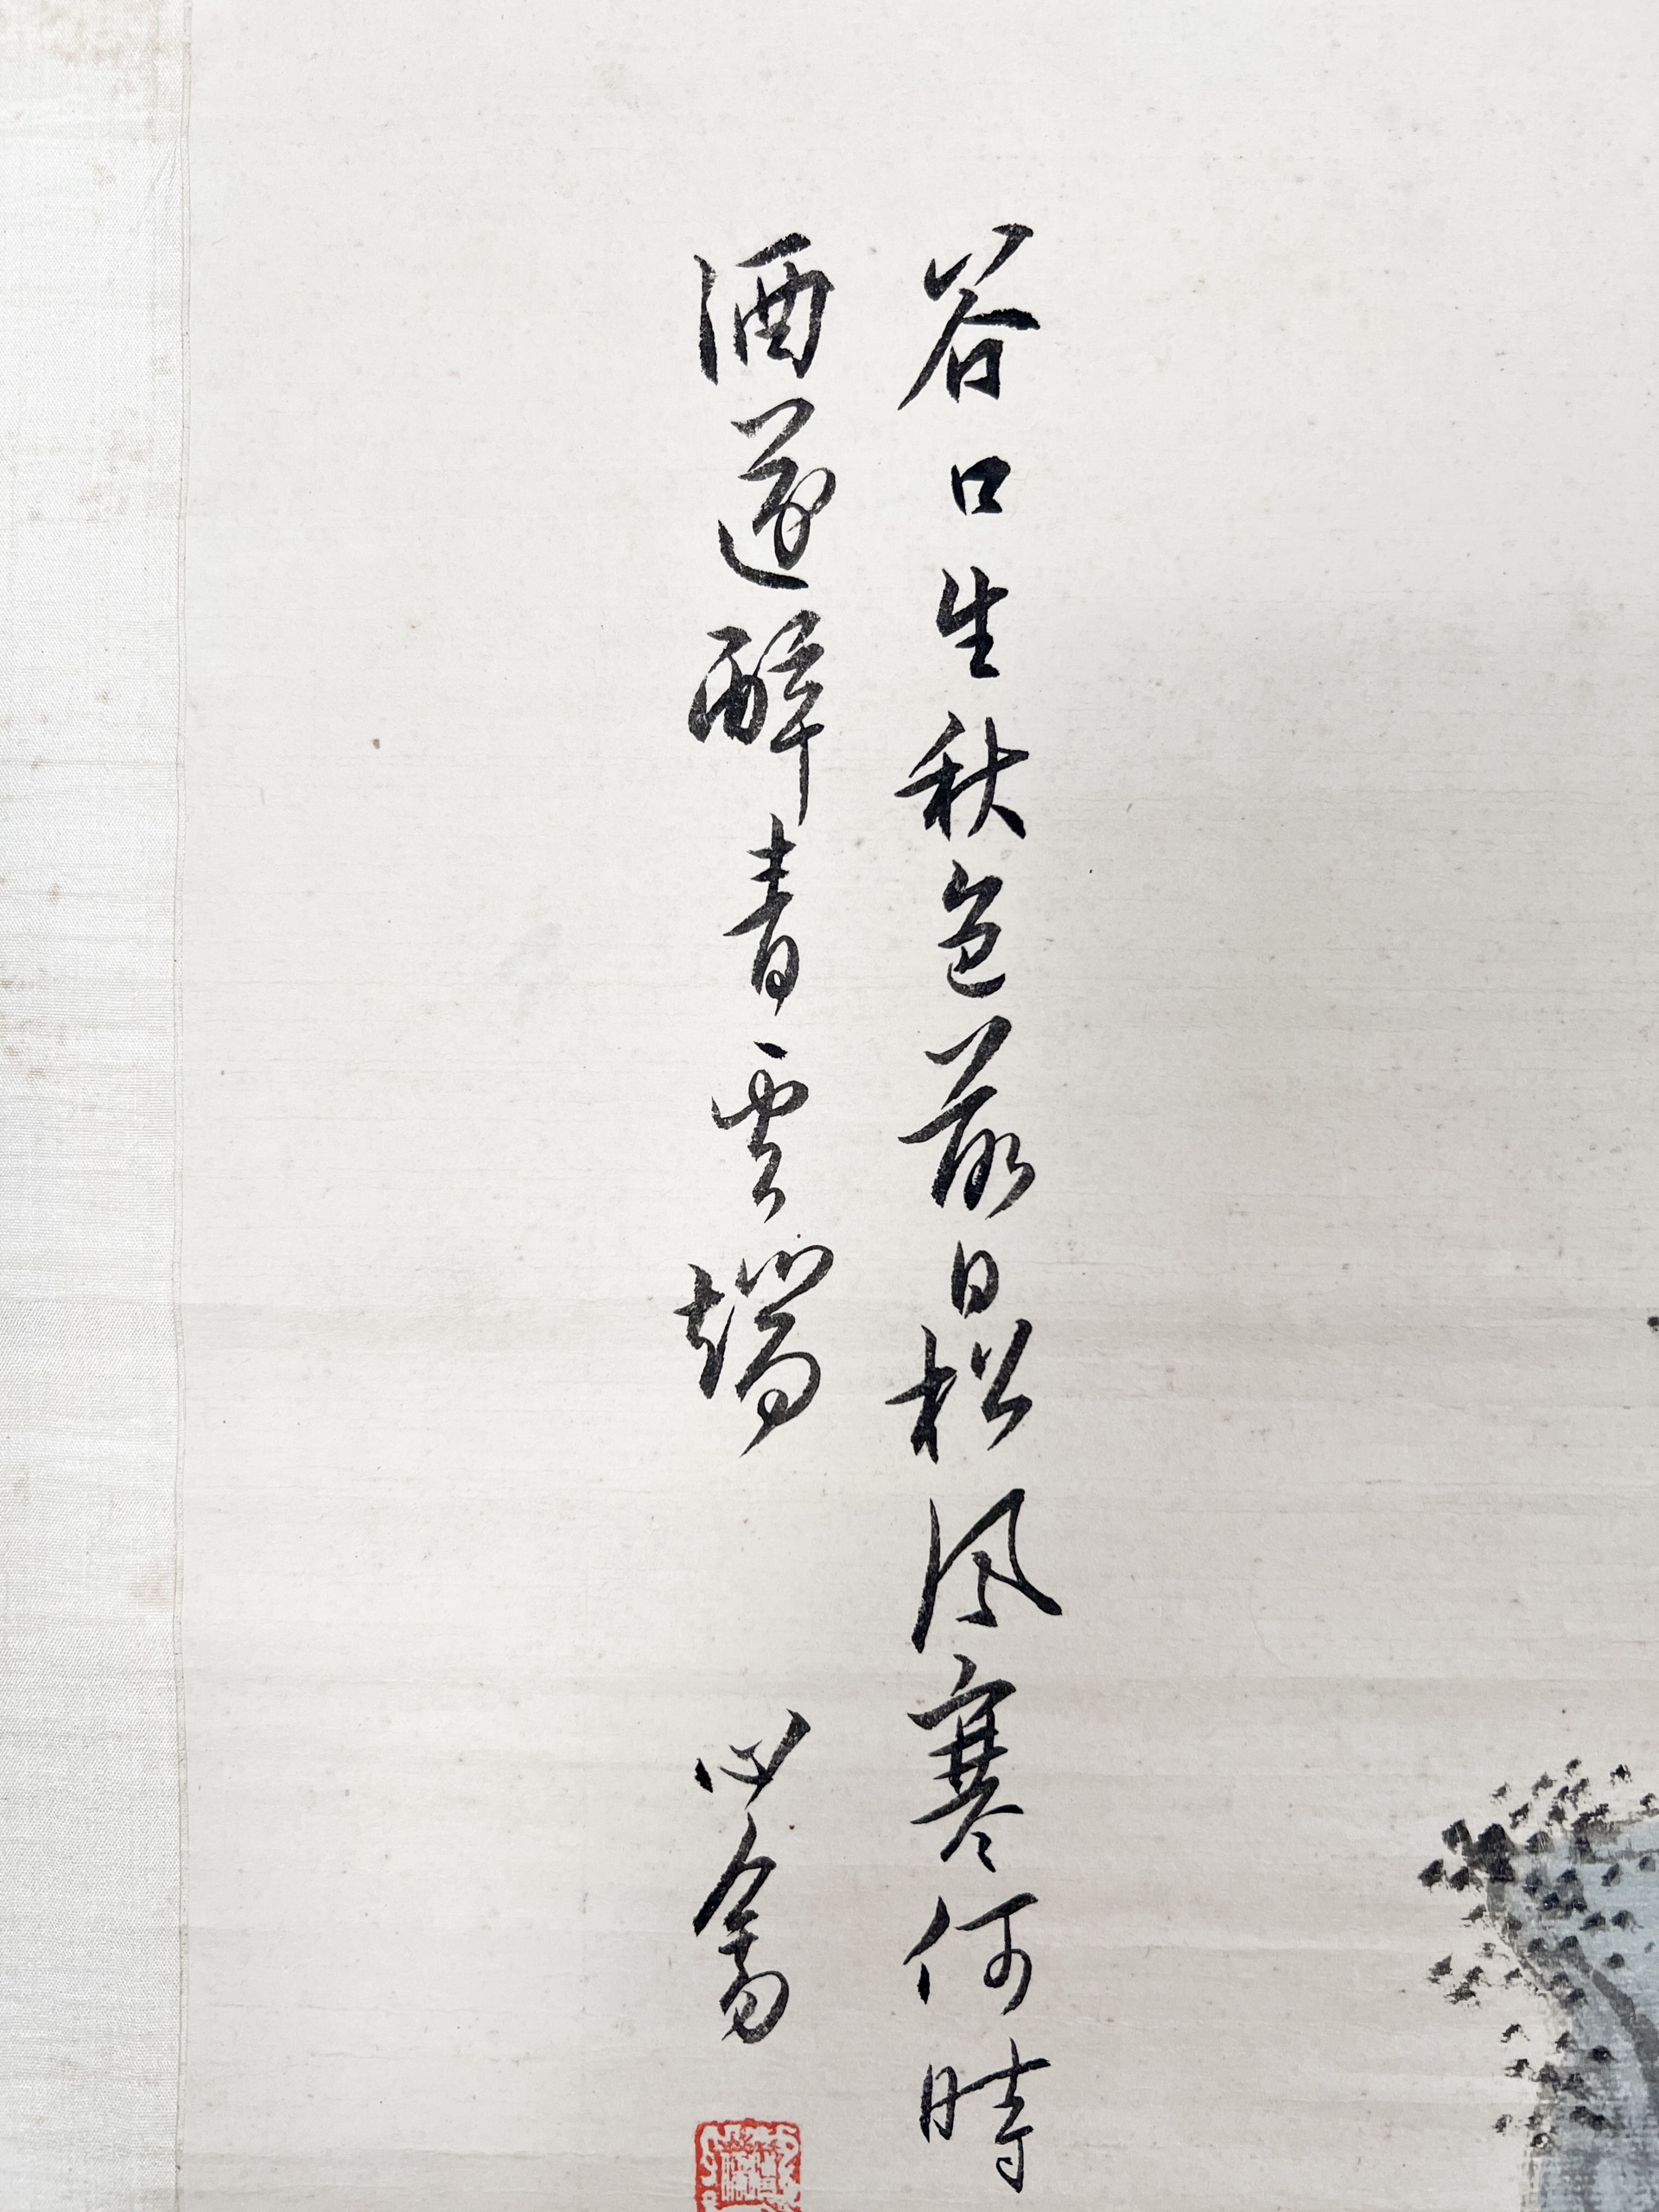 谷口生秋色落日松風寒何時
酒遂醉青雲端
心畬